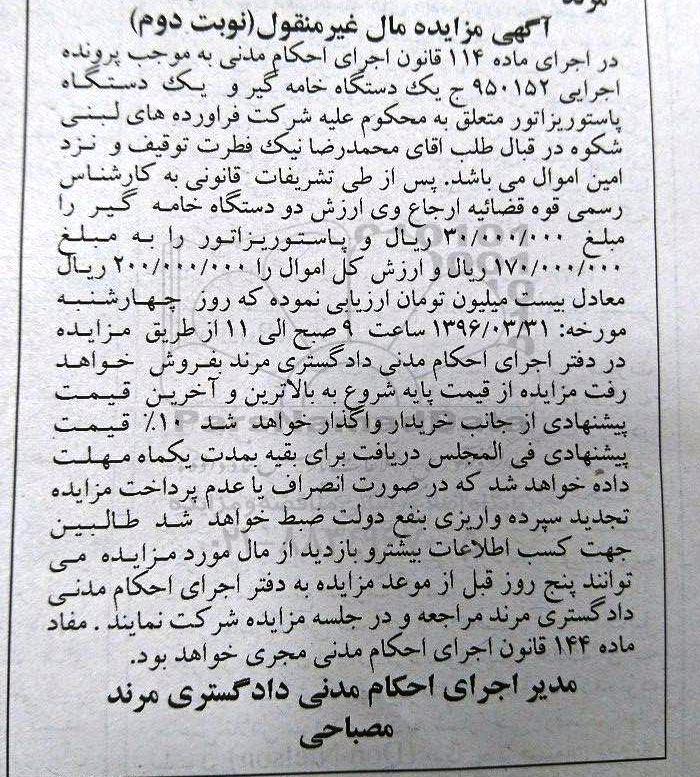 مرند
آگهی مزایده مال غیرمنقول(نوبت دوم)
در اجرای ماده ۱۱۴ قانون اجرای احکام مدنی به موجب پرونده
اجرایی ۹۵۰۱۵۲ ج یک دستگاه خامه گیر و یک دستگاه
پاستوریزاتور متعلق به محکوم علیه شرکت فراورده های لبنی
شکوه در قبال طلب اقای محمدرضا نیک فطرت توقیف و نزد
امین اموال می باشد. پس از طی تشریفات قانونی به کارشناس
رسمی قوه قضائیه ارجاع وی ارزش دو دستگاه خامه گیر را
مبلغ ۳۰/۰۰۰/۰۰۰ ریال و پاستوریزاتور را به مبلغ
۱۷۰/۰۰۰/۰۰۰ ریال و ارزش کل اموال را ۲۰۰/۰۰۰/۰۰۰ ریال
معادل بیست میلیون تومان ارزیابی نموده که روز چهارشنبه
مورخه: ۱۳۹۶/۰۳/۳۱ ساعت ۹ صبح الی ۱۱ از طریق مزایده
در دفتر اجرای احکام مدنی دادگستری مرند بفروش خواهد
رفت مزایده از قیمت پایه شروع به بالاترین و آخرین قیمت
پیشنهادی از جانب خریدار واگذار خواهد شد ۱۰٪ قیمت
پیشنهادی فی المجلس دریافت برای بقیه بمدت یکماه مهلت
داده خواهد شد که در صورت انصراف یا عدم پرداخت مزایده
تجدید سپرده واریزی بنفع دولت ضبط خواهد شد طالبین
جهت کسب اطلاعات بیشترو بازدید از مال مورد مزایده می
توانند پنج روز قبل از موعد مزایده به دفتر اجرای احکام مدنی
دادگستری مرند مراجعه و در جلسه مزایده شرکت نمایند . مفاد
ماده ۱۴۴ قانون اجرای احکام مدنی مجری خواهد بود.
مدیر اجرای احکام مدنی دادگستری مرند
مصباحی